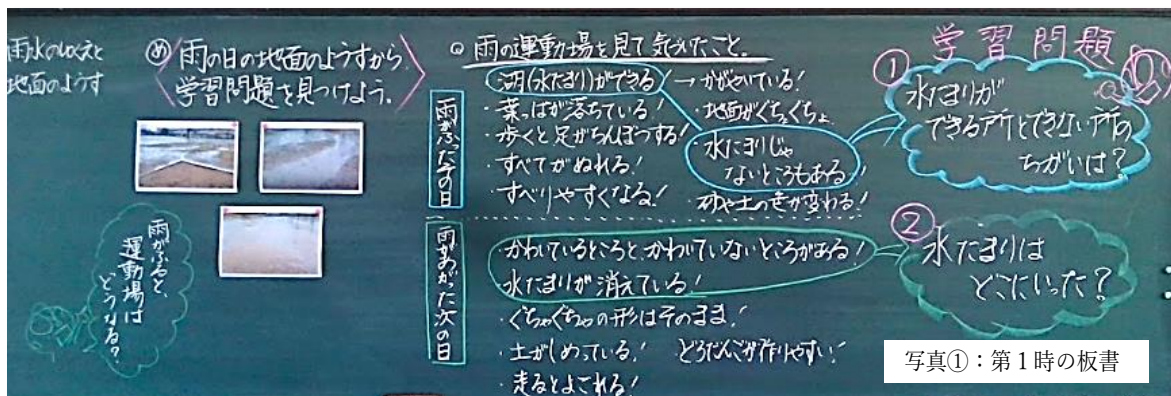 雨水のゆくえと
地面のようす
め 雨の日の地面のようすから、
学習問題を見つけよう。
雨がふると、
運動場は
どうなる?
雨の運動場を見て気づいたこと。
雨がふったその日
湖(水たまり)ができる → かがやいている!
・葉っぱが落ちている!
・歩くと足がちんぼつする!
・すべてがぬれる!
・すべりやすくなる!
・地面がぐちょぐちょ
・水たまりじゃ
ないところもある!
・砂や土の色が変わる!
雨があがった次の日
・かわいているところと、かわいていないところがある!
・水たまりが消えている!
・ぐちゃぐちゃの形はそのまま!
・土がしめっている! どろだんごが作りやすい!
・走るとよごれる!
学習問題
① 水たまりが
できる所とできない所の
ちがいは?
② 水たまりは
どこにいった?
写真①:第1時の板書